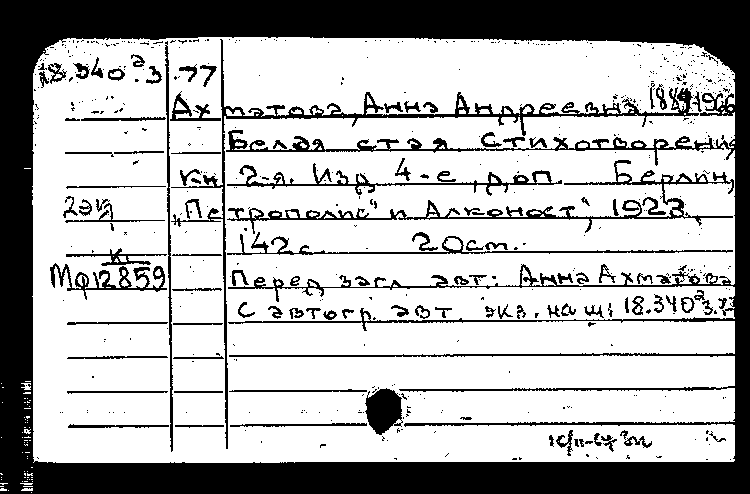 18.340ᵃ.3.77
Ахматова, Анна Андреевна, 1889-1966
Белая стая Стихотворения
Кн 2-я. Изд 4-е, доп. Берлин,
2эк „Петрополис" и Алконост", 1923.
142с. 20см.
К.
Мф12859 Перед загл. авт.: Анна Ахматова
С автогр. авт. экз. на ш: 18.340ᵃ.3.77